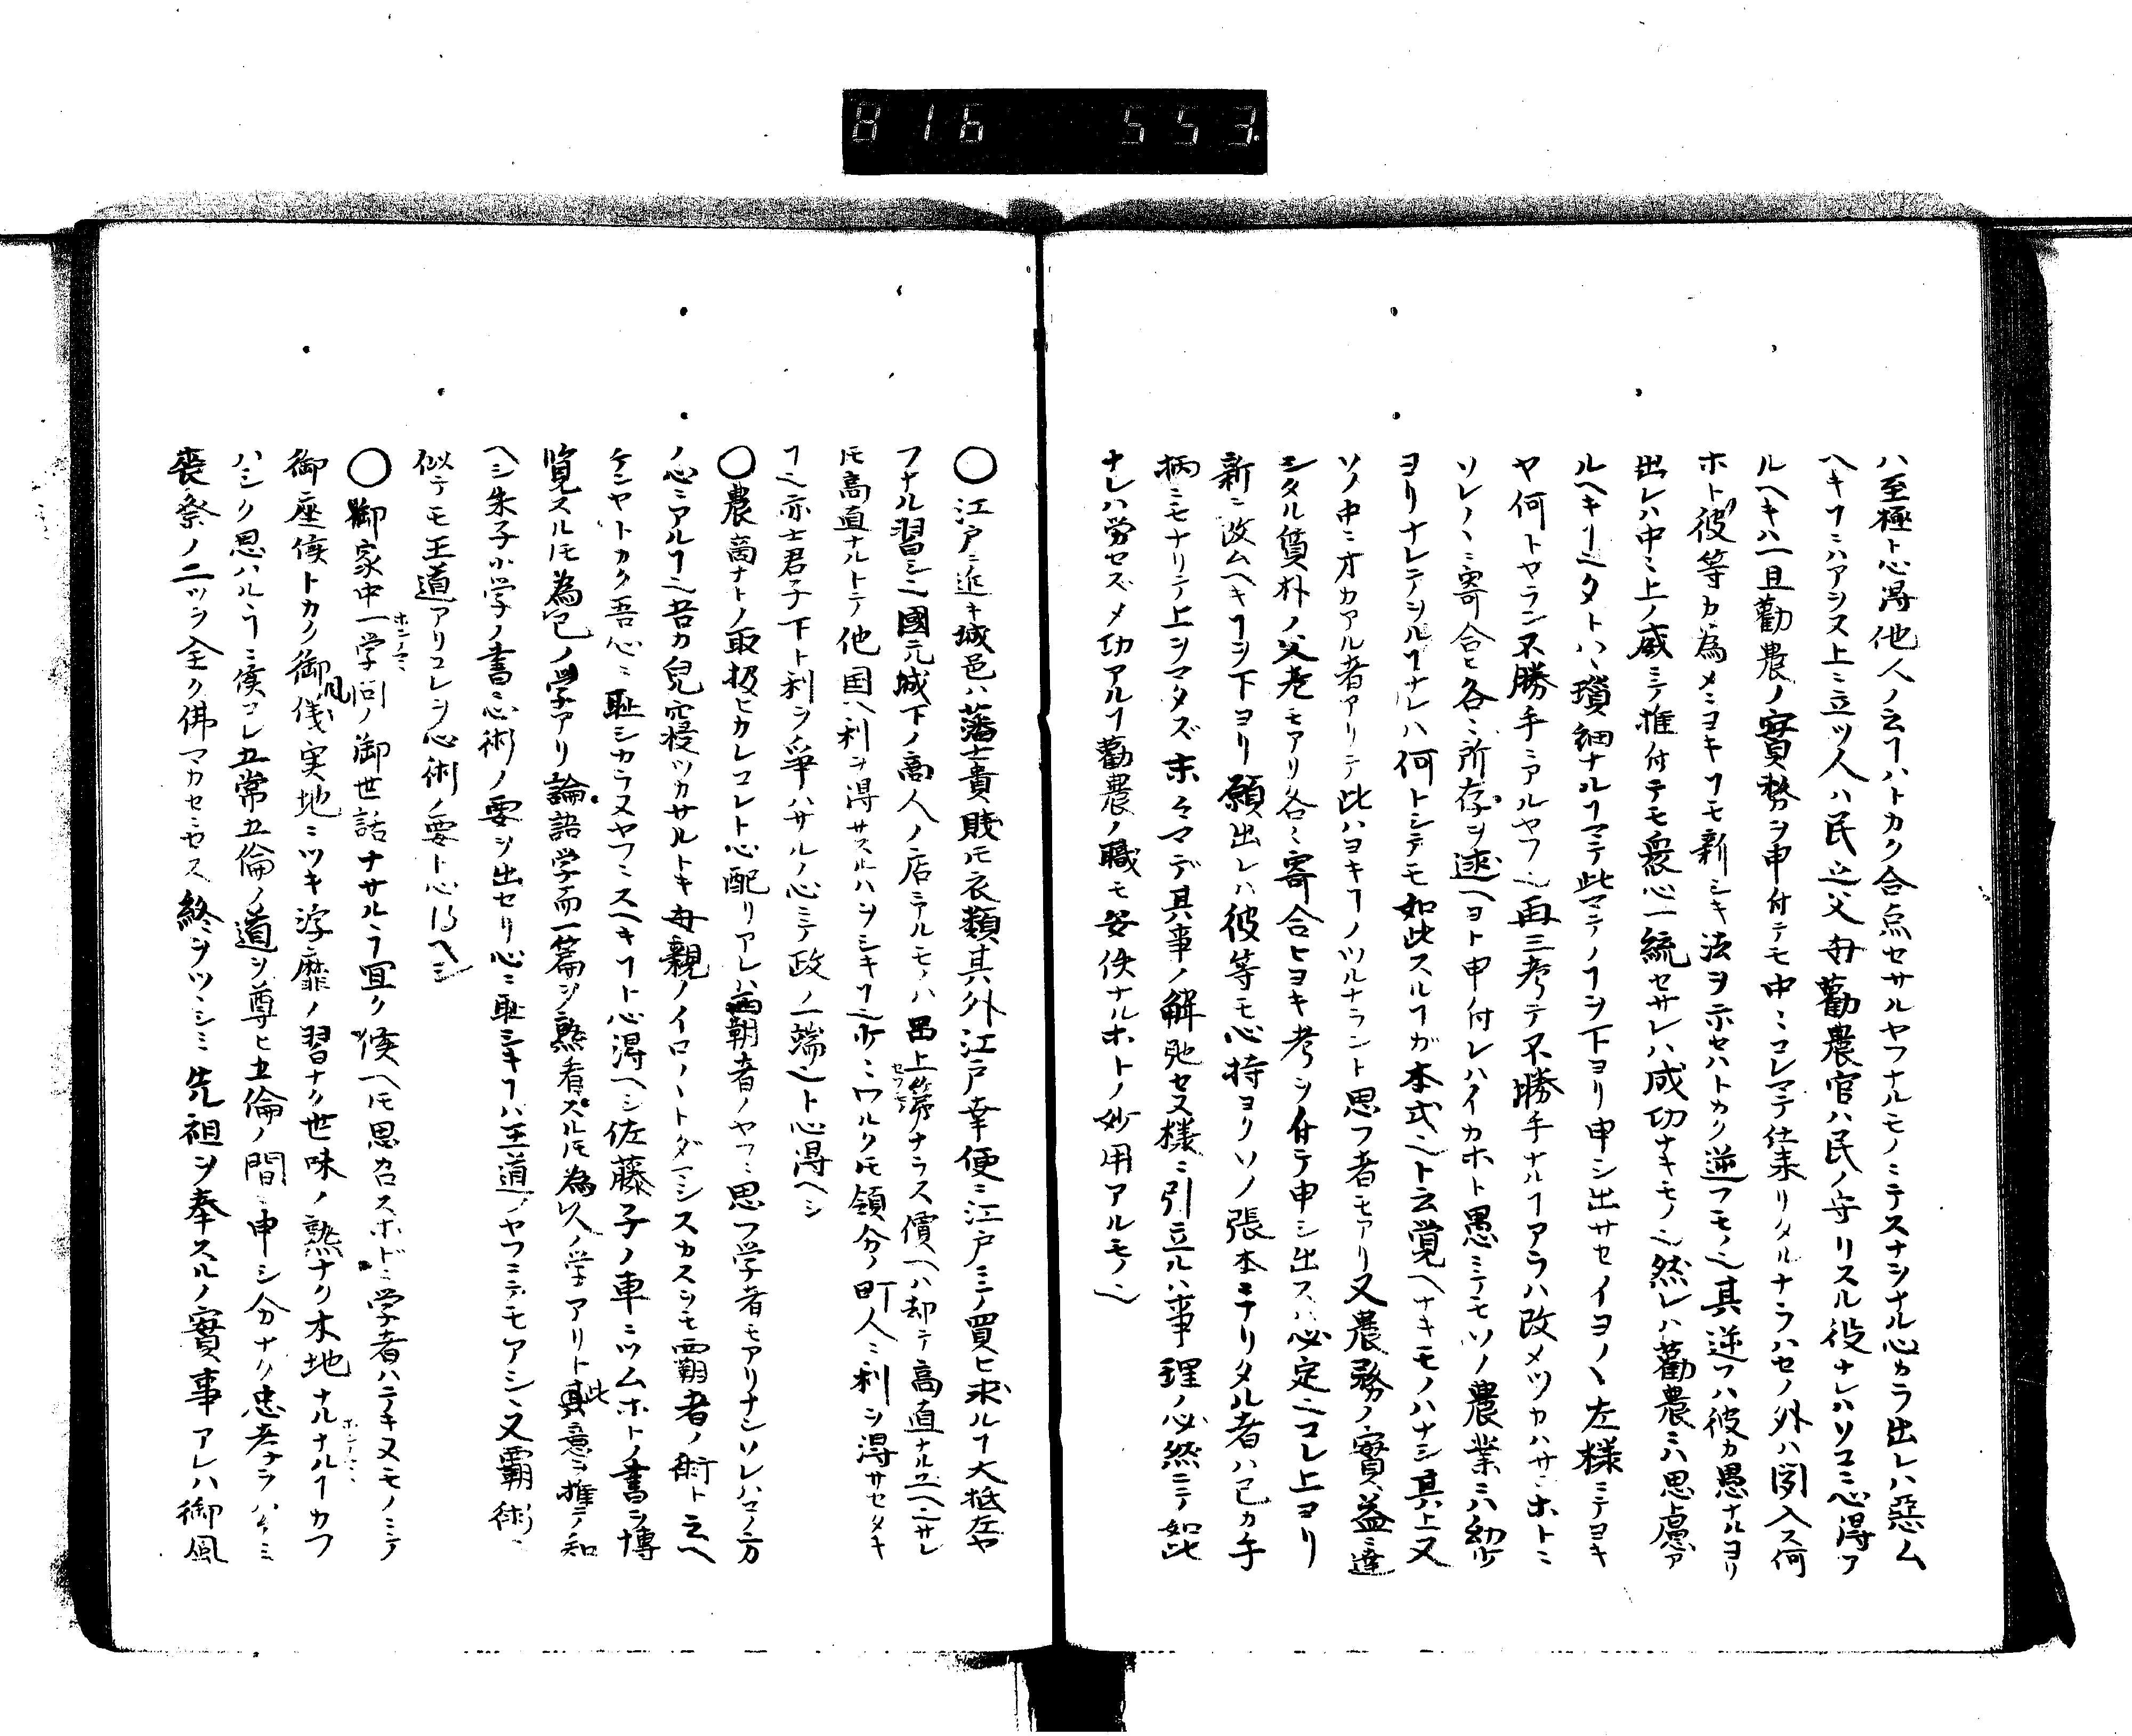 816 553
ハ至極ト心得他人ノ云ヿハトカク合点セサルヤフナルモノニテスナシナル心カラ出レハ惡ム
ヘキヿニハアラス上ニ立ツ人ハ民之父母勸農官ハ民ノ守リスル役ナレハソコニ心得ア
ルヘキハ一旦勸農ノ實務ヲ申付テモ中ニコレマテ仕来リタルナラハセノ外ハ聞入ス何
ホト彼等カ為メニヨキヿモ新シキ法ヲ示セハトカク逆フモノ也其逆フハ彼カ愚ナルヨリ
出レハ中ニ上ノ威ニテ推付テモ衆心一統セサレハ成功ナキモノ也然レハ勸農ニハ思慮ア
ルヘキヿ也タトハヽ瑣細ナルヿマテ此マテノヿヲ下ヨリ申シ出サセイヨ〳〵左様ニテヨキ
ヤ何トヤラン不勝手ニアルヤフ也再三考テ不勝手ナルヿアラハ改メツカハサンホトニ
ソレ〳〵ニ寄合ヒ各ニ所存ヲ述ヘヨト申付レハイカホト愚ニテモソノ農業ニハ幼少
ヨリナレテヲルヿナレハ何トシテモ如此スルヿガ本式也ト云覚ヘナキモノハナシ其上又
ソノ中ニオカアル者アリテ此ハヨキヿノツルナラント思フ者モアリ又農務ノ實益ニ達
シタル質朴ノ父老モアリ各ニ寄合ヒヨキ考ヲ付テ申シ出スハ必定也コレ上ヨリ
新ニ改ムヘキヿヲ下ヨリ願出レハ彼等モ心持ヨクソノ張本ニナリタル者ハ己カ手
柄ニモナリテ上ヲマタズ末々マデ其事ノ解弛セヌ様ニ引立ルハ事理ノ必然ニテ如此
ナレハ労セズメ功アルヿ勸農ノ職モ安佚ナルホトノ妙用アルモノ也
〇江戸ニ近キ城邑ハ藩士貴賤𪜈衣類其外江戸幸便ニ江戸ニテ買ヒ求ルヿ大抵左ヤ
フナル習シ也國元城下ノ商人ノ店ニアルモノハ品上等ナラス價ヘハ却テ高直ナル𪜈ヘニサレ
𪜈高直ナルトテ他国ヘ利ヲ得サスルハヲシキヿ也少ニワルク𪜈領分ノ町人ニ利ヲ得サセタキ
ヿ也亦士君子下ト利ヲ爭ハサルノ心ニテ政ノ一端也ト心得ヘシ
〇農商ナトノ取扱ヒカレコレト心配リアレハ覇者ノヤフニ思フ学者モアリナンソレハソノ方
ノ心ニアルヿ也吾カ兒寝ツカサルトキ母親ノイロ〳〵トダマシスカスヲモ覇者ノ術ト云ヘ
ケンヤトカク吾心ニ恥シカラヌヤフニスヘキヿト心得ヘシ佐藤子ノ車ニツムホトノ書ヲ博
覧スル𪜈為己ノ学アリ論語学而一篇ヲ熟看スル𪜈為人ノ学アリト此意ヲ推テ知
ヘシ朱子小学ノ書ニ心術ノ要ヲ出セリ心ニ恥シキヿハ王道ノヤフニテモアシヽ又覇術ニ
似テモ王道アリコレヲ心術ノ要ト心得ヘシ
〇御家中一学問ノ御世話ナサルヽヿ宜ク候ヘ𪜈思召スホドニ学者ハデキヌモノニテ
御座候トカク御風儀実地ニツキ浮靡ノ習ナク世味ノ熟ナク木地ナルナルヿカフ
ハシク思ハルヽヿニ候コレ五常五倫ノ道ヲ尊ヒ五倫ノ間ニ申シ分ナク忠孝ヲハケミ
喪祭ノ二ツヲ全ク佛マカセニセス終ヲツヽシミ先祖ヲ奉スルノ實事アレハ御風